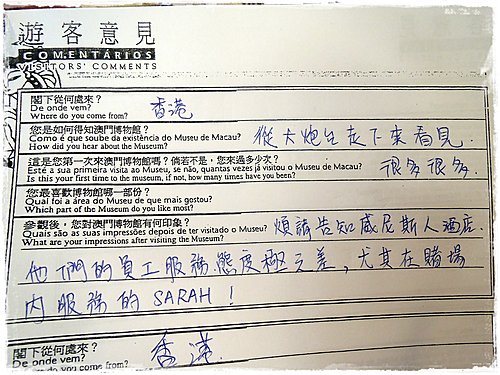 遊客意見
COMENTÁRIOS
VISITORS' COMMENTS
閣下從何處來？
De onde vem?
Where do you come from?
香港
您是如何得知澳門博物館？
Como é que soube da existência do Museu de Macau?
How did you hear about the Museum?
從大炮台走下來看見.
這是您第一次來澳門博物館嗎？倘若不是，您來過多少次？
Esté a sua primeira visita ao Museu, se não, quantas vezes já visitou o Museu de Macau?
Is this your first time to the museum, if not, how many times have you been?
很多很多.
您最喜歡博物館哪一部份？
Qual foi a área do Museu de que mais gostou?
Which part of the Museum do you like most?
參觀後，您對澳門博物館有何印象？
Quais são as suas impressões depois de ter visitado o Museu?
What are your impressions after visiting the Museum?
煩請告知威尼斯人酒店.
他們的員工服務態度極之差，尤其在賭場
内服務的 SARAH！
閣下從何處來？
De onde vem?
Where do you come from?
香港